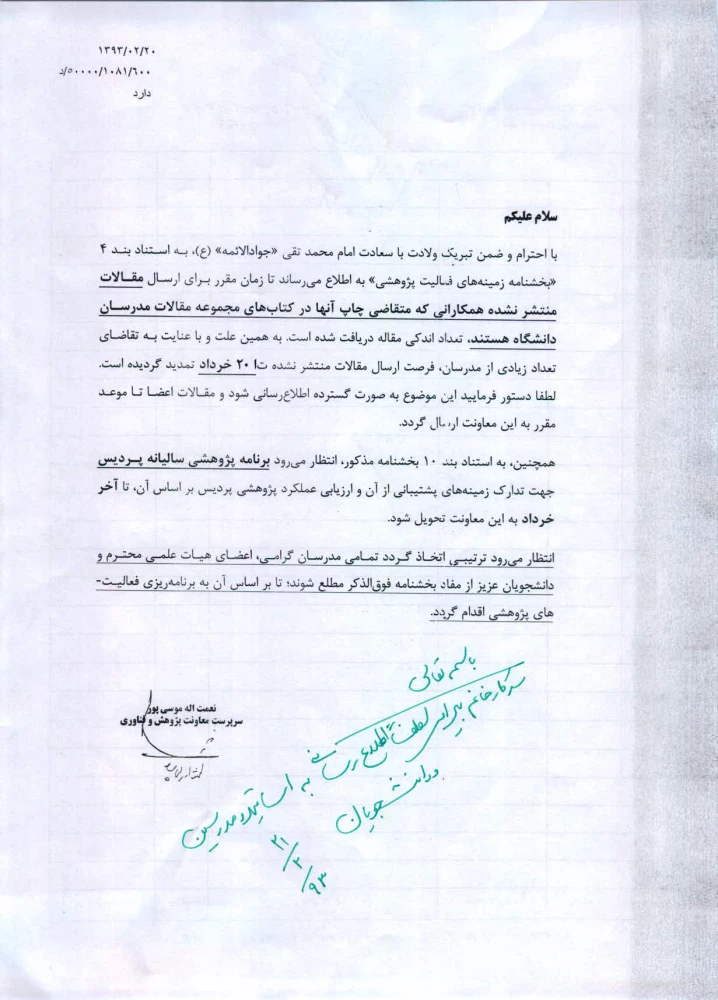 ۱۳۹۳/۰۲/۲۰
۵۰۰۰۰/۱۰۸۱/۶۰۰/د
دارد
سلام علیکم
با احترام و ضمن تبریک ولادت با سعادت امام محمد تقی «جوادالائمه» (ع)، به استناد بند ۴
«بخشنامه زمینه‌های فعالیت پژوهشی» به اطلاع می‌رساند تا زمان مقرر برای ارسال مقالات
منتشر نشده همکارانی که متقاضی چاپ آنها در کتاب‌های مجموعه مقالات مدرسان
دانشگاه هستند، تعداد اندکی مقاله دریافت شده است. به همین علت و با عنایت به تقاضای
تعداد زیادی از مدرسان، فرصت ارسال مقالات منتشر نشده تا ۲۰ خرداد تمدید گردیده است.
لطفا دستور فرمایید این موضوع به صورت گسترده اطلاع‌رسانی شود و مقالات اعضا تا موعد
مقرر به این معاونت ارسال گردد.
همچنین، به استناد بند ۱۰ بخشنامه مذکور، انتظار می‌رود برنامه پژوهشی سالیانه پردیس
جهت تدارک زمینه‌های پشتیبانی از آن و ارزیابی عملکرد پژوهشی پردیس بر اساس آن، تا آخر
خرداد به این معاونت تحویل شود.
انتظار می‌رود ترتیبی اتخاذ گردد تمامی مدرسان گرامی، اعضای هیات علمی محترم و
دانشجویان عزیز از مفاد بخشنامه فوق‌الذکر مطلع شوند؛ تا بر اساس آن به برنامه‌ریزی فعالیت-
های پژوهشی اقدام گردد.
نعمت اله موسی پور
سرپرست معاونت پژوهش و فناوری
باسمه تعالی
سرکار خانم لطفاً اطلاع رسانی
به اساتید و مدرسین
و دانشجویان
۲۱/۳/۹۳